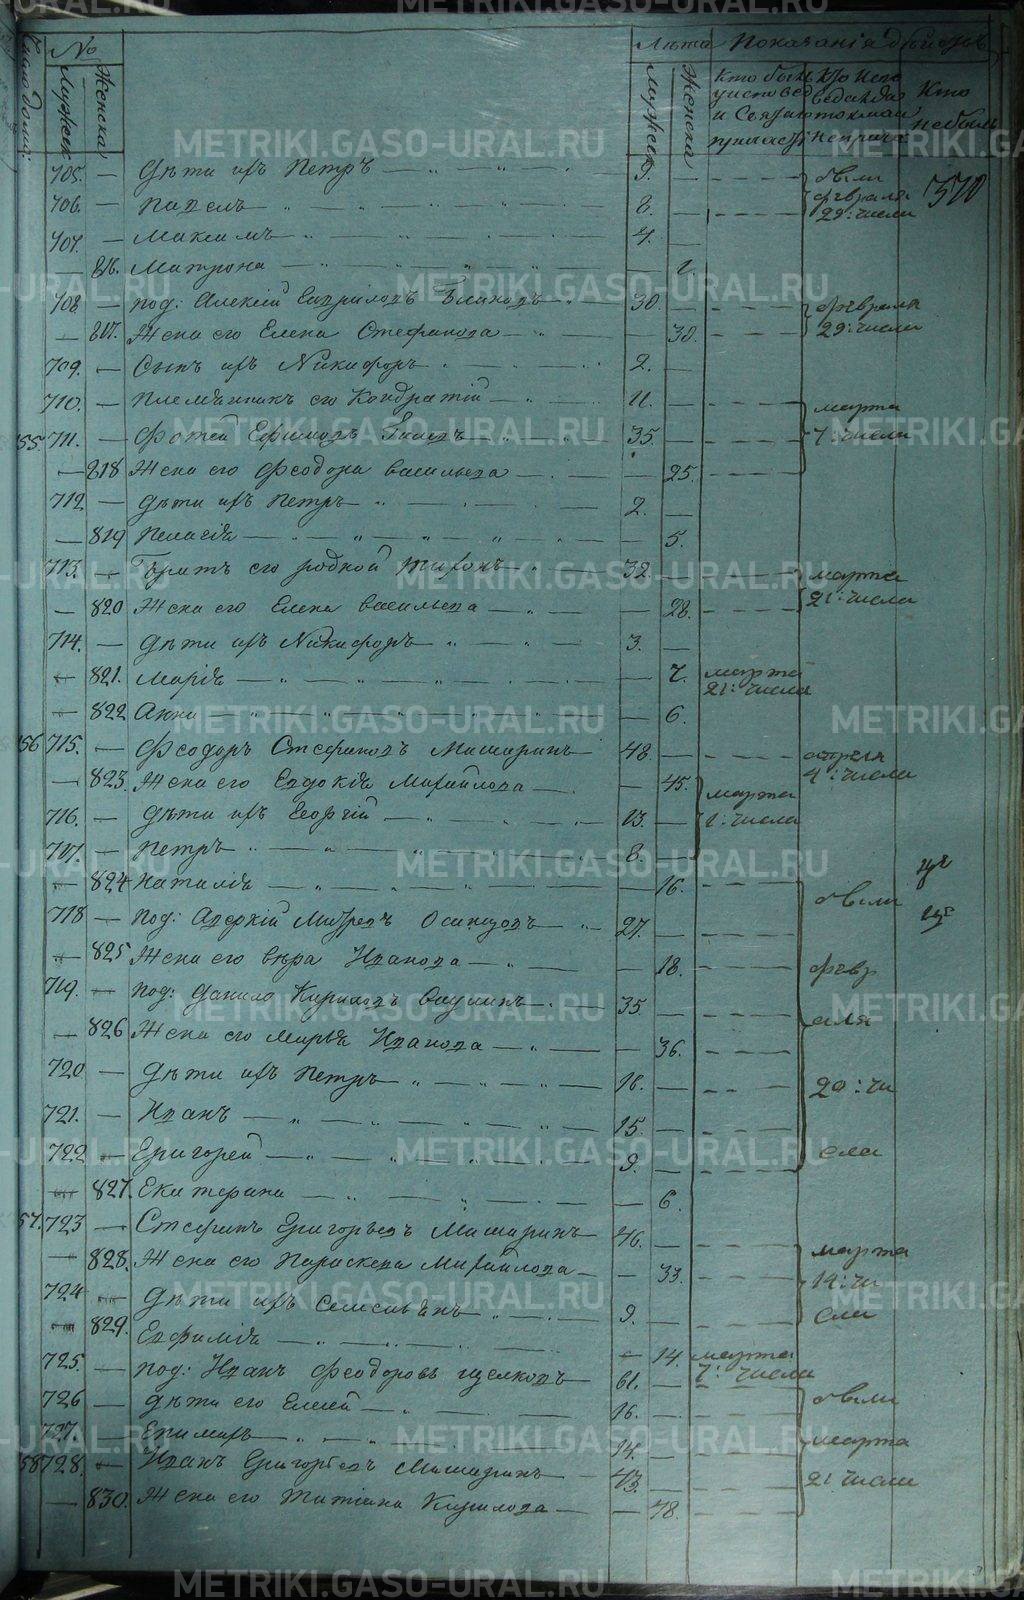 Число домов.
№ Лѣта Показанія дѣйств
Мужск Женска Мужск Женска
Кто былъ у исповѣд и Святаго причаст Кто испо ведался токмо и не прича Кто небылъ
705. — Дѣти ихъ Петръ — 9. — были
706. — Павелъ 8. — февраля 29: числа 370
707. — Максимъ 4. —
— 816. Матрона — 2.
708. — под: Алексій Гаврилов Блинов 30. — февраля
— 817. Жена его Елена Стефанова — 30. 29: числа
709. — Сынъ ихъ Никифоръ 2. —
710. — племянникъ его Кондратій 11. — марта
55 711. — Фотей Ефимовъ 35. — 7: числа
— 818 Жена его Феодора Васильева — 25.
712 — Дѣти ихъ Петръ 2. —
— 819 Пелагія — 5.
713. — Братъ его родной Тихонъ 32. — марта
— 820 Жена его Елена Васильева — 28. 21: числа
714. — Дѣти ихъ Никифоръ 3. —
— 821. Марія — 7. марта 21: числа
— 822 Анна — 6.
56 715. — Феодоръ Стефанов Машаринъ 48. — апреля
— 823. Жена его Евдокія Михайлова — 45. марта 4: числа
716. — Дѣти ихъ Георгій 13. — 1: числа
717. — Петръ 8. —
— 824 Наталія — 16. были
718 — под: Аверкій Осинцовъ 27. —
— 825 Жена его Вѣра Иванова — 18. февр
719. — под: Данило Кирилов 35. — аля
— 826 Жена его Марья Иванова — 36.
720 — Дѣти ихъ Петръ 16. — 29: чи
721. — Иванъ 15 —
722 — Григорей 9. — сла
— 827. Екатерина — 6.
57. 723 — Стефанъ Григорьев Машаринъ 46. — марта
— 828. Жена его Параскева Михайлова — 33. 14: чи
724 — Дѣти ихъ Селиванъ 9. — сла
— 829. Евфимія — 14. марта
725. — под: Иванъ Феодоровъ Щелков 61. — 7: числа
726 — Дѣти его Елисей 16. — были
727. — 14. — марта
58 728. — Иванъ Григорьев Машаринъ 43. — 21 числа
— 830. Жена его Татіана Кирилова — 48.
METRIKI.GASO-URAL.RU